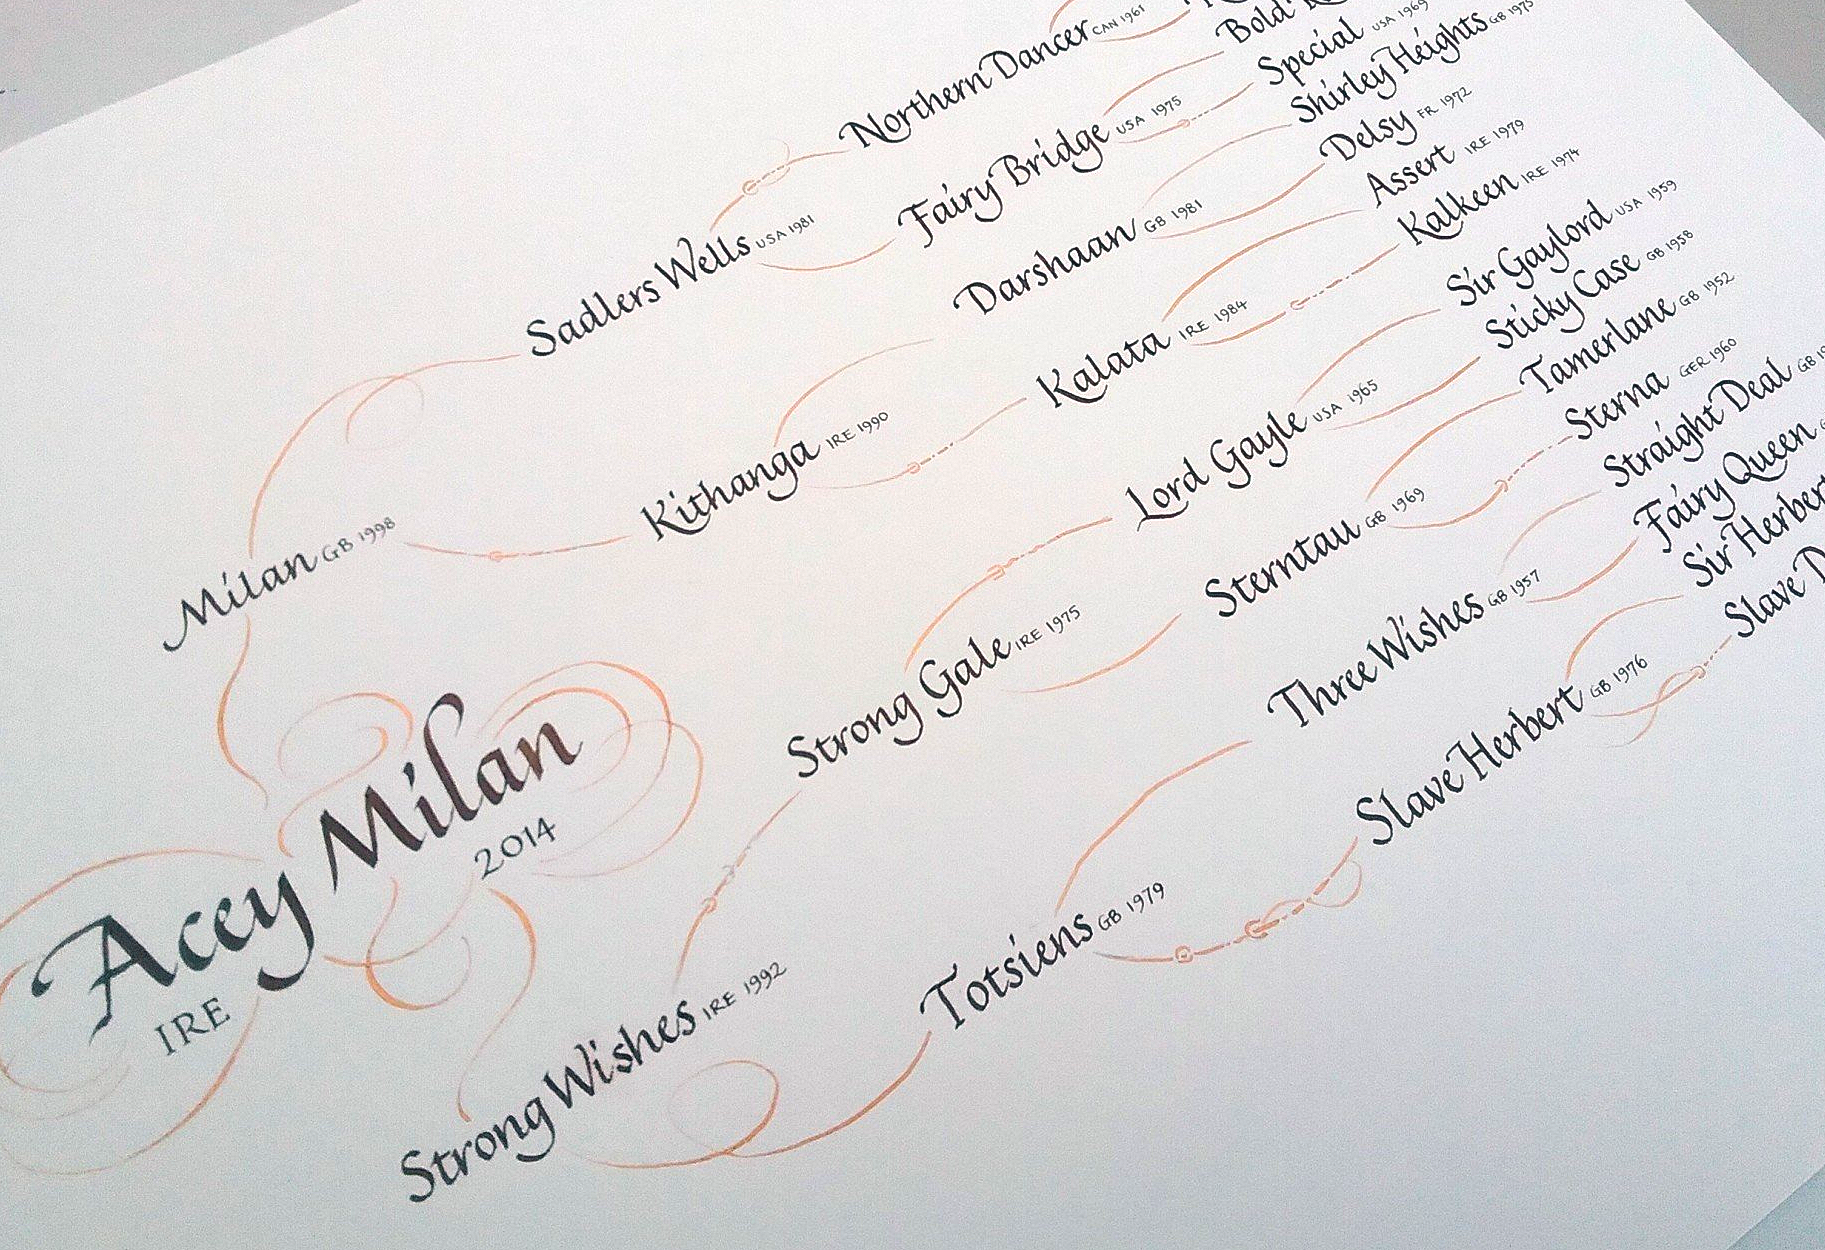 Northern Dancer CAN 1961
Bold
Special USA 1969
Fairy Bridge USA 1975
Shirley Heights GB 1975
Sadlers Wells USA 1981
Delsy FR 1972
Darshaan GB 1981
Assert IRE 1979
Kalkeen IRE 1974
Kalata IRE 1984
Kithanga IRE 1990
Milan GB 1998
Sir Gaylord USA 1959
Sticky Case GB 1958
Lord Gayle USA 1965
Tamerlane GB 1952
Sterna GER 1960
Sterntau GB 1969
Strong Gale IRE 1975
Acey Milan
2014
IRE
Straight Deal GB
Fairy Queen
Three Wishes GB 1957
Sir Herbert
Slave
Slave Herbert GB 1976
Totsiens GB 1979
Strong Wishes IRE 1992